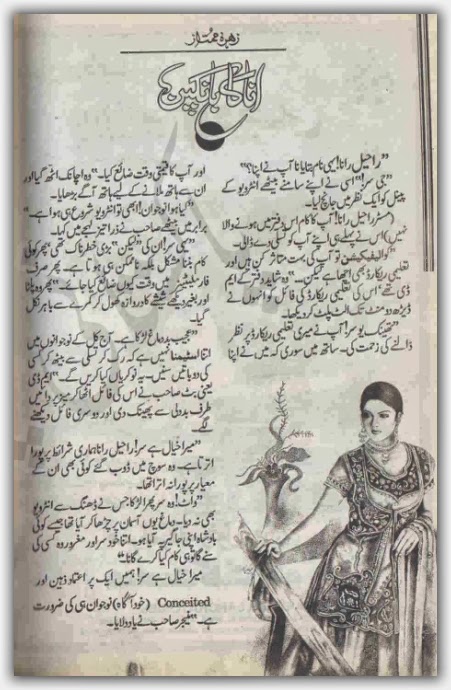 زہرہ ممتاز
انا کا بانکپن
"راحیل رانا! یہی نام بتایا نا آپ نے اپنا؟"
"جی سر!" اسی نے اپنے سامنے بیٹھے انٹرویو کے
پینل کو ایک نظر میں جانچ لیا۔
(مسٹر راحیل رانا! آپ کا کام اس دفتر میں ہونے والا
نہیں) اس نے پہلے ہی اپنے آپ کو تسلی دے ڈالی۔
"کوالیفکیشن تو آپ کی بہت متاثر کن ہیں اور
تعلیمی ریکارڈ بھی اچھا ہے لیکن۔۔" وہ شاید دفتر کے ایم
ڈی تھے' اس کی تعلیمی ریکارڈ کی فائل کو انہوں نے
ڈیڑھ دو منٹ تک الٹ پلٹ کر دیکھا۔
"تھینک یو سر! آپ نے میری تعلیمی ریکارڈ پر نظر
ڈالنے کی زحمت کی۔ ساتھ میں سوری کہ میں نے اپنا
اور آپ کا قیمتی وقت ضائع کیا۔" وہ اچانک اٹھ گیا اور
ان سے ہاتھ ملانے کے لیے ہاتھ آگے بڑھایا۔
"کیا ہوا نوجوان! ابھی تو انٹرویو شروع ہی ہوا ہے۔"
برابر میں بیٹھے صاحب نے ذرا تیز لہجے میں کہا۔
"یہی سر! ان کی 'لیکن' بڑی خطرناک تھی' پھر کوئی
کام بننا مشکل بلکہ ناممکن ہی ہوتا ہے۔ پھر صرف
فارمیلٹیز میں وقت کیوں ضائع کیا جائے۔" پھر وہ پلٹا
اور بغیر دیکھے شیشے کا دروازہ کھول کر کمرے سے باہر نکل
گیا۔
"عجیب بد دماغ لڑکا ہے۔ آج کل کے نوجوانوں میں
اتنا اسٹیمنا نہیں ہے کہ رک کر تسلی سے بیٹھ کر کسی
کی دو باتیں سنیں۔ یہ نوکریاں کیا کریں گے۔" ایم ڈی
یعنی بٹ صاحب نے اس کی فائل اٹھا کر میز پر دائیں
طرف بددلی سے پھینک دی اور دوسری فائل دیکھنے
لگے۔
"میرا خیال ہے سر! راحیل رانا ہماری شرائط پر پورا
اترتا ہے۔ وہ سوچ میں ڈوب گئے کوئی بھی ان کے
معیار پر پورا نہ اترا تھا۔
"واٹ! وہ سر پھرا لڑکا جس نے ڈھنگ سے انٹرویو
بھی نہ دیا۔ دماغ یوں آسمان پر چڑھا کر آیا تھا جیسے کوئی
بادشاہ اپنی جاگیر۔ آیا ہو۔ اتنا خود سر اور مغرور وہ کسی کی
سنے گا تو ہی کام کیا کرے گا نا۔"
میرا خیال ہے سر! ہمیں ایک پر اعتماد ذہین اور
Conceited (خود آگاہ) نوجوان ہی کی ضرورت
ہے۔" منیجر صاحب نے یاد دلایا۔